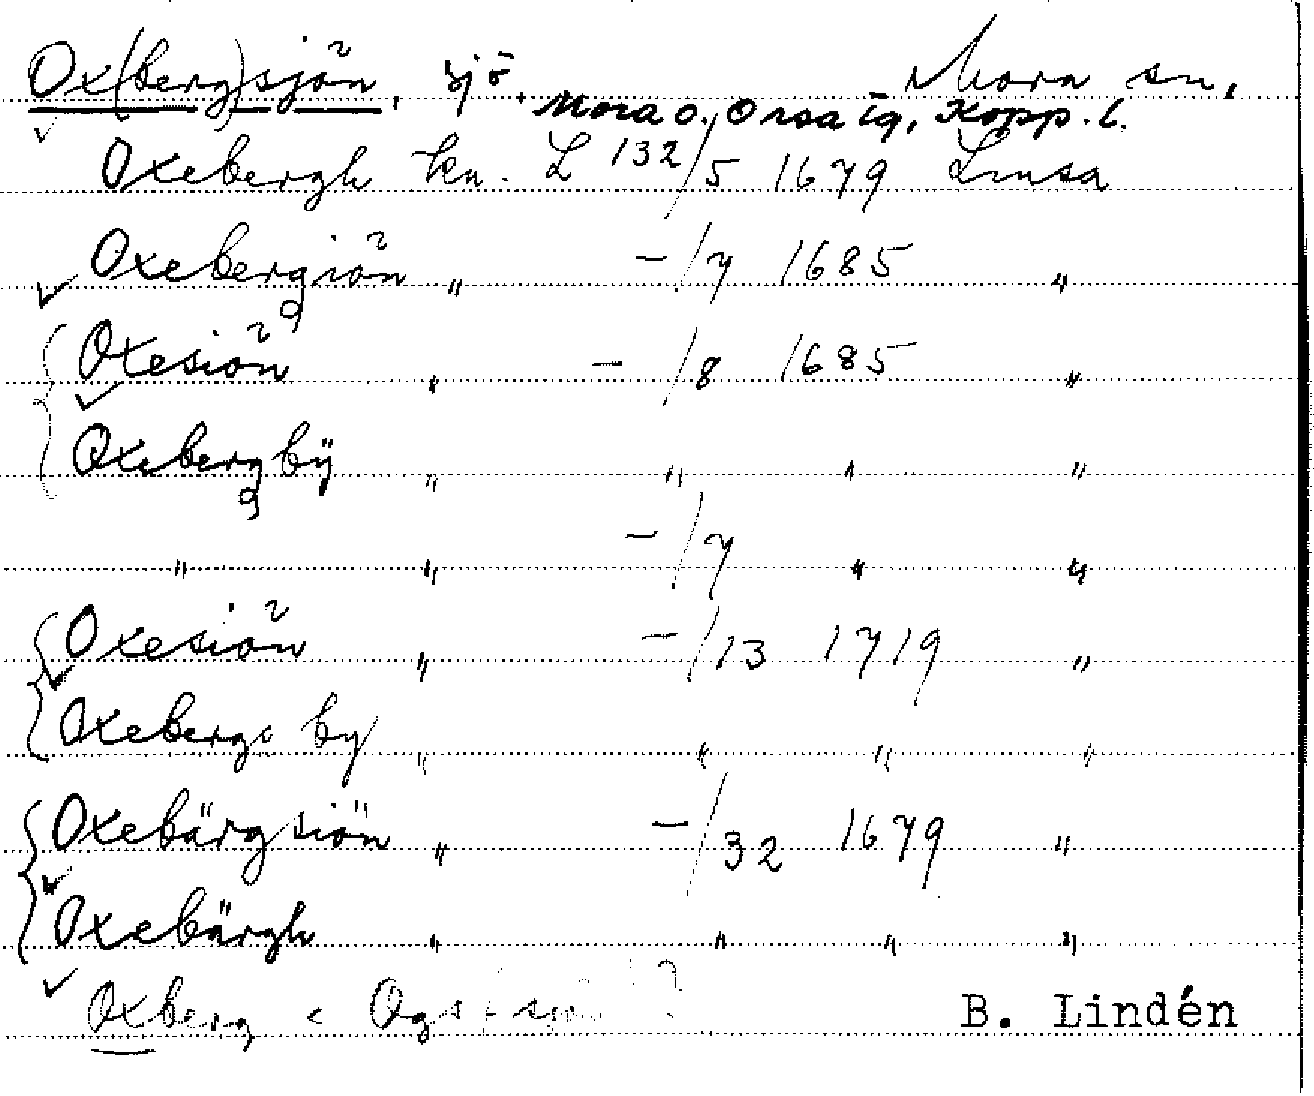 Ox(berg)sjön, sjö, Mora sn,
Mora o. Orsa tg, Kopp. l.
Oxebergh kn. L 132/5 1679 Lmsa
Oxebergiön " -/7 1685 "
Oxesiön " -/8 1685 "
Oxebergbÿ " " " "
" " -/7 " "
Oxesiön " -/13 1719 "
Oxebergs by " " " "
Oxebärgsiön " -/32 1679 "
Oxebärgh " " " "
Oxberg < Ogs sjön ?
B. Lindén